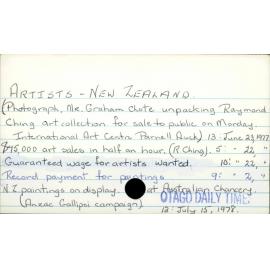 ARTISTS - NEW ZEALAND.
(Photograph, Mr. Graham Chote unpacking Raymond
Ching art collection for sale to public on Monday.
International Art Centre Parnell Auck) 13: June 23, 1977
$75,000 art sales in half an hour. (R. Ching). 5: " 22, "
Guaranteed wage for artists wanted. 10: " 22, "
Record payment for paintings 9: " 2, "
N.Z paintings on display at Australian Chancery.
(Anzac Gallipoli campaign)
OTAGO DAILY TIME
12: July 15, 1978.